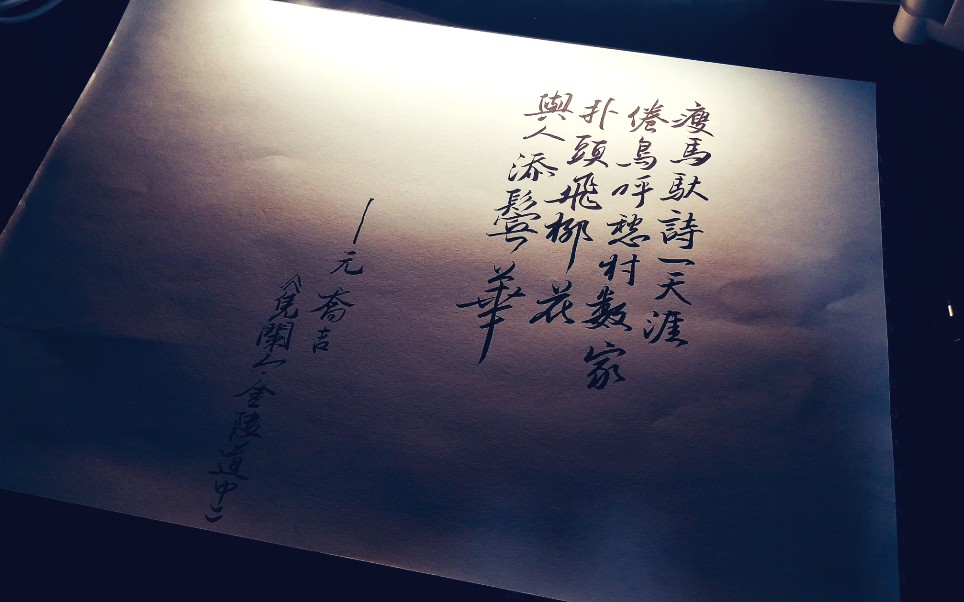 瘦馬馱詩一天涯
倦鳥呼愁村数家
扑頭飛柳花
與人添鬢華
—元 喬吉
《凭闌人·金陵道中》